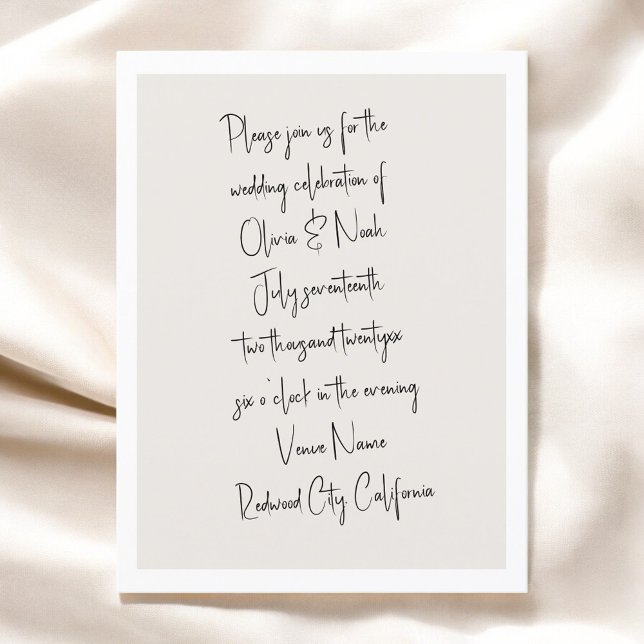 Please join us for the
wedding celebration of
Olivia & Noah
July seventeenth
two thousand twentyxx
six o'clock in the evening
Venue Name
Redwood City, California